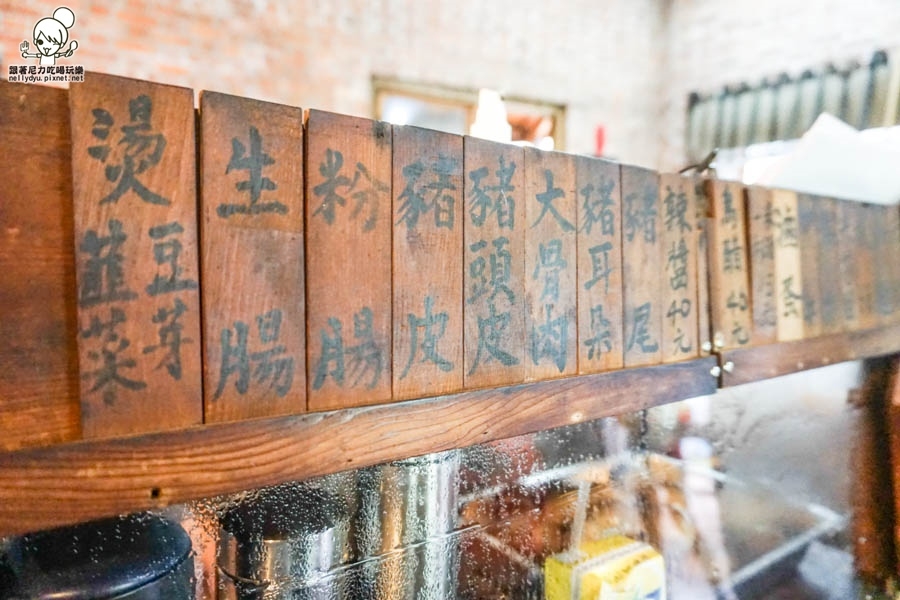 跟著尼力吃喝玩樂
nellydyu.pixnet.net
燙
韮菜
豆芽
生腸
粉腸
豬皮
豬頭皮
大骨肉
豬耳朵
豬尾
辣醬40元